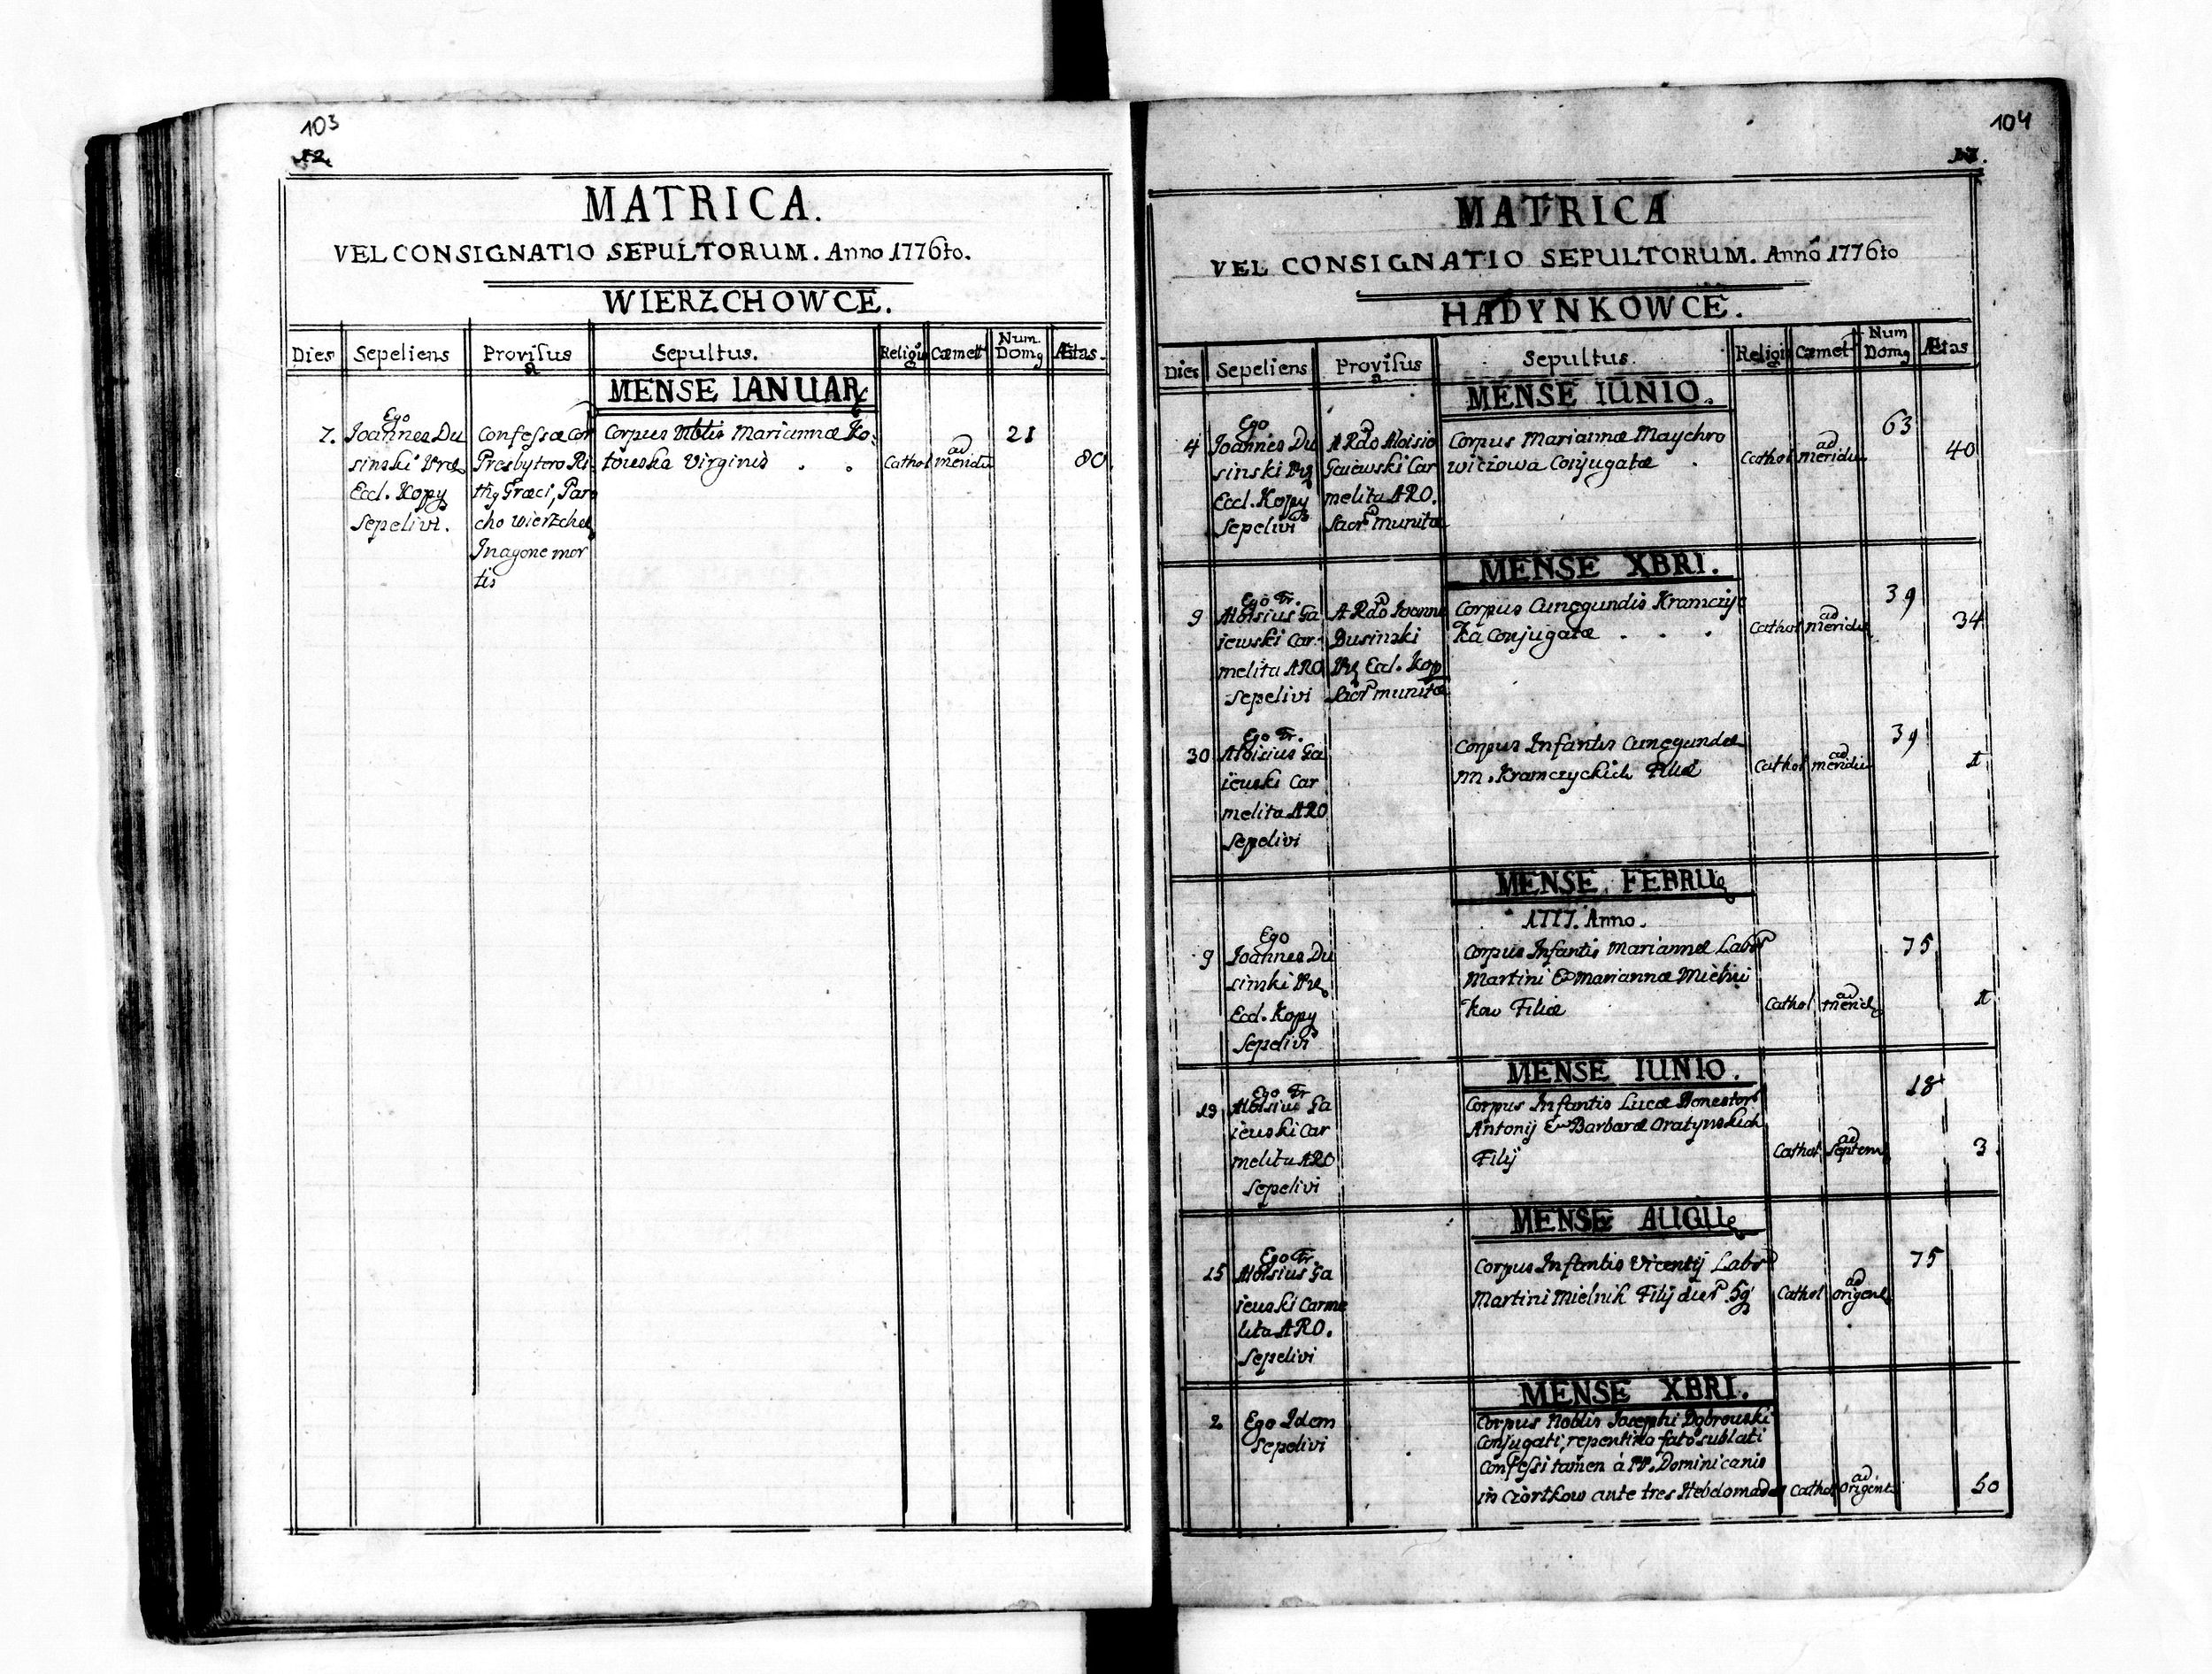 103
12
MATRICA.
VEL CONSIGNATIO SEPULTORUM. Anno 1776to.
WIERZCHOWCE.
Dies Sepeliens Provisus a Sepultus. Religio Cæmett Num Domq Ætas.
MENSE IANUAR
7. Ego
Joannes Du
sinski
Eccl. Kopy
Sepelivi.
Confessæ cor
Presbytero Ri
thq Græci, Paro
cho Wierzchq
In agone mor
tis
Corpus Nblis Mariannæ Ko
toleska Virginis . .
Cathol ad meridie 21 80
104
MATRICA
VEL CONSIGNATIO SEPULTORUM. Anno 1776to
HADYNKOWCE.
Dies Sepeliens Provisus a Sepultus. Religio Cæmett Num Domq Ætas
MENSE IUNIO.
4 Ego
Joannes Du
sinski Prq
Eccl. Kopy
Sepelivi
A Rdo Aloisio
Gaiewski Car
melita ARO.
Sacr munitæ
Corpus Mariannæ Maychro
wiczowa Conjugatæ .
Cathol ad meridie 63 40
MENSE XBRI.
9 Ego Fr.
Aloisius Ga
jewski Car
melita ARO
Sepelivi
A Rdo Joanne
Dusinski
Prq Eccl. Kop
Sacr munitæ
Corpus Cunegundis Kramczyc
ka Conjugatæ . . .
Cathol ad meridie 39 34
30 Ego Fr.
Aloisius Ga
iewski Car
melita ARO
Sepelivi
Corpus Infantis Cunegundæ
m. Kramczyckich Filiæ
Cathol ad meridie 39 1
MENSE FEBRUq
1777. Anno.
9 Ego
Joannes Du
sinski Prq
Eccl. Kopy
Sepelivi
Corpus Infantis Mariannæ Labr
Martini & Mariannæ Mielni
kow Filiæ
Cathol ad merid 75 1
MENSE IUNIO.
19 Ego Fr
Aloisius Ga
iewski Car
melita ARO
Sepelivi
Corpus Infantis Lucæ Honestor
Antonij & Barbaræ Oratynskich
Filij
Cathol ad septem 18 3
MENSE AUGUq
15 Ego Fr.
Aloisius Ga
iewski Carme
lita ARO.
Sepelivi
Corpus Infantis Vicentij Labr
Martini Mielnik Filij dier
Cathol ad origent 75
MENSE XBRI.
2 Ego Idem
Sepelivi
Corpus Noblis Josephi Dąbrowski
Conjugati, repentino fato sublati
Confessi tamen à PP. Dominicanis
in Czortkow ante tres Hebdomadas
Cathol ad Origent 50